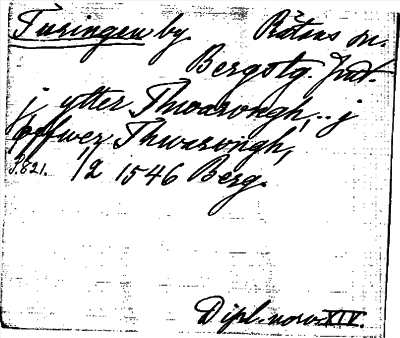 Turingen by. Rätans sn.
Bergstg. Jmt.
j ytter Thwarongh, .. j
offwer Thwarongh,
P. 821. 1/2 1546 Berg.
Dipl. norv. XIV.